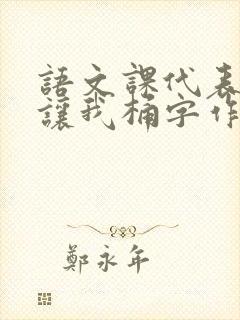 語文課代表
讓我桶字作
鄭永年